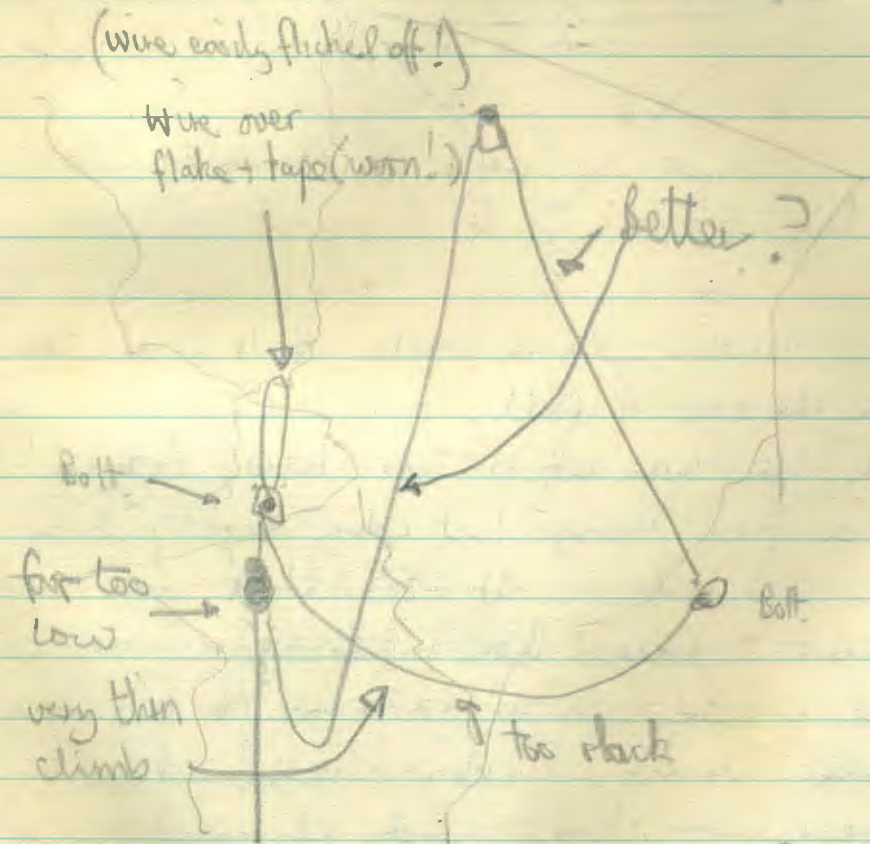 (wire easily flicked off!)
Wire over
flake + tape (worn!)
Better ?
Bolt
far too
low
Bolt
very thin
climb
too slack